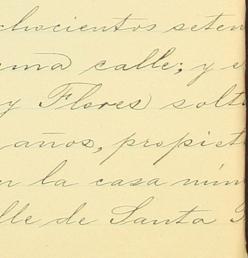 chocientos seten
ma calle; y e
y Flores solt
años, propiet
n la casa núm
lle de Santa